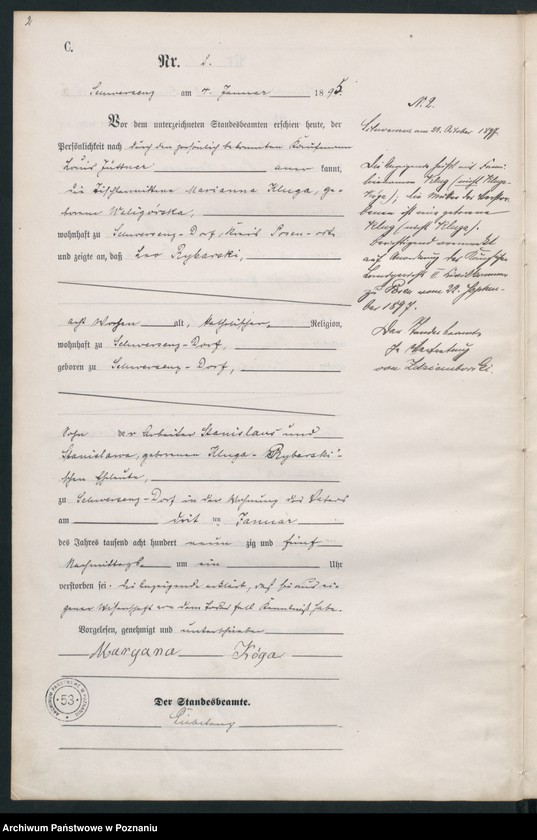 2
C.
Nr. 2.
Schwersenz am 4. Januar 1895.
Vor dem unterzeichneten Standesbeamten erschien heute, der
Persönlichkeit nach durch den persönlich bekannten Kaufmann
Louis Jüttner anerkannt,
die Tischlerwittwe Marianna Kluga, ge-
borene Weligórska,
wohnhaft zu Schwersenz-Dorf, Kreis Posen-Ost,
und zeigte an, daß Leo Rybarski,
acht Wochen alt, katholischer Religion,
wohnhaft zu Schwersenz-Dorf,
geboren zu Schwersenz-Dorf,
Sohn der Arbeiter Stanislaus und
Stanislawa, geborenen Kluga-Rybarski'-
schen Eheleute,
zu Schwersenz-Dorf in der Wohnung des Vaters
am dritten Januar
des Jahres tausend acht hundert neunzig und fünf
Nachmittags um ein Uhr
verstorben sei. Die Anzeigende erklärt, daß sie aus ei-
gener Wissenschaft von dem Todesfall Kenntniß habe.
Vorgelesen, genehmigt und unterschrieben
Maryana Kóga
Der Standesbeamte.
ARCHIWUM PAŃSTWOWE W POZNANIU
53
N. 2.
Schwersenz am 28. Oktober 1897.
Die Anzeigende heißt mit Fami-
liennamen Klug (nicht Kluga-
Kóga), die Mutter des Verstor-
benen ist eine geborene
Klug (nicht Kluga).
Berichtigend vermerkt
auf Anordnung des Königlichen
Landgerichts II Civilkammer
zu Posen vom 22. Septem-
ber 1897.
Der Standesbeamte
In Vertretung
von Zdziembowski.
Archiwum Państwowe w Poznaniu